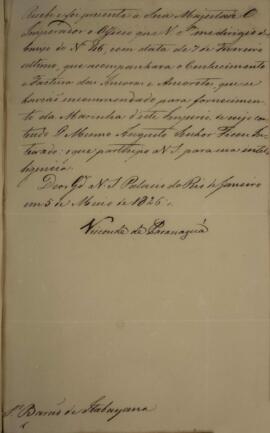 Recebi e foi presente a Sua Magestade O
Imperador o Officio que V. S.ª me dirigio de
baixo do Nº 66, com data de 7 de Fevereiro
ultimo, que acompanhava o Conhecimento
e Factura das Ancoras e Ancoretes, que se
havião encommendado para fornecimen
to da Marinha d'este Imperio de cujo con
teudo O Mesmo Augusto Senhor Ficou In
teirado: o que participo a V. S. para sua intel
ligencia.
Deos G.de a V. S. Palacio do Rio de Janeiro
em 5 de Maio de 1826.
Visconde de Paranaguá
S.r Barão de Itabayana